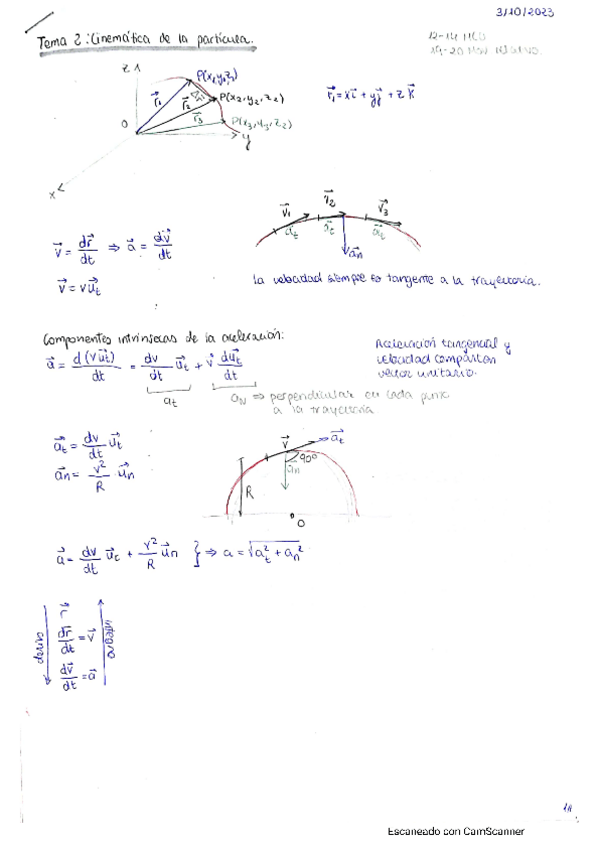 3/10/2023
Tema 2: Cinemática de la partícula.
12-14 MCU
z
P(x₁,y₁,z₁)
P(x₂,y₂,z₂)
P(x₃,y₃,z₂)
r⃗₁
r⃗₂
r⃗₃
O
y
x
r⃗₁ = xi⃗ + yj⃗ + z k⃗
v⃗ = dr⃗/dt ⇒ a⃗ = dv⃗/dt
v⃗ = v u⃗t
v⃗₁ v⃗₂ v⃗₃
a⃗t a⃗t a⃗t
a⃗n
La velocidad siempre es tangente a la trayectoria.
Componentes intrínsecas de la aceleración:
a⃗ = d(v u⃗t)/dt = dv/dt u⃗t + v⃗ du⃗t/dt
at
aN ⇒ perpendicular en cada punto
a la trayectoria.
Aceleración tangencial y
velocidad comparten
vector unitario.
a⃗t = dv/dt u⃗t
a⃗n = v²/R u⃗n
v⃗
a⃗t
90º
a⃗n
R
O
a⃗ = dv/dt u⃗t + v²/R u⃗n } ⇒ a = √at² + an²
r⃗
dr⃗/dt = v⃗
dv⃗/dt = a⃗
integro
Escaneado con CamScanner